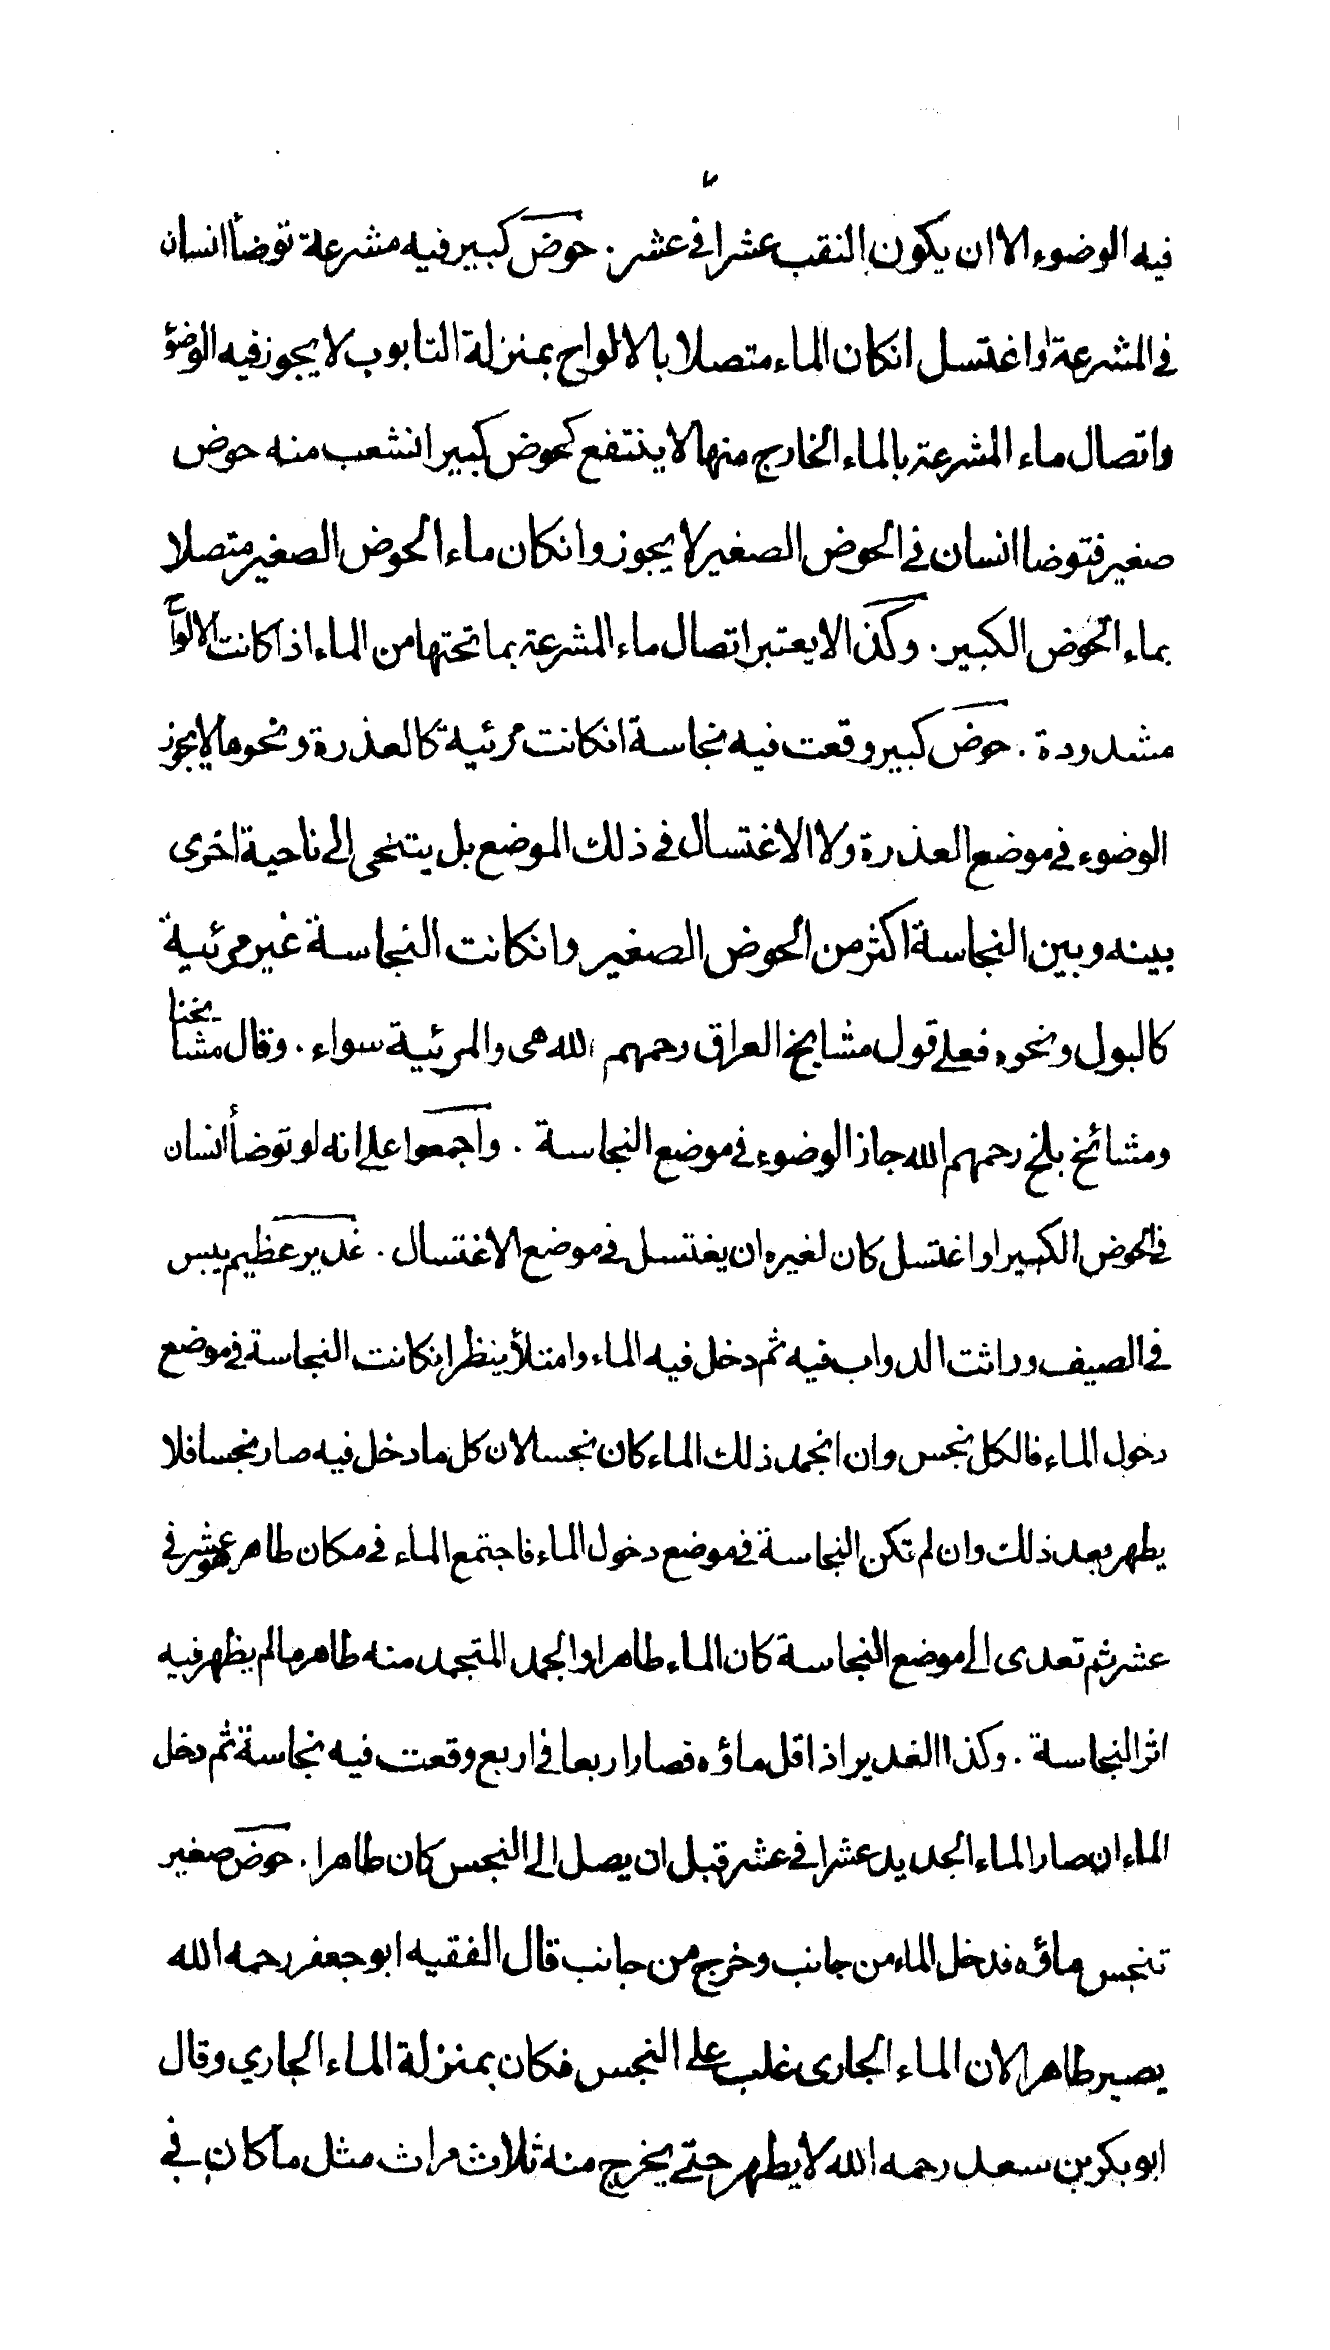 فيه الوضوء الا ان يكون النقب عشرا في عشر . حوض كبير فيه مشرعة توضأ انسان
في المشرعة او اغتسل انكان الماء متصلا بالالواح بمنزلة التابوب لا يجوز فيه الوضؤ
واتصال ماء المشرعة بالماء الخارج منها لا ينتفع كحوض كبير انشعب منه حوض
صغير فتوضا انسان في الحوض الصغير لا يجوز وانكان ماء الحوض الصغير متصلا
بماء الحوض الكبير . وكذا لا يعتبر اتصال ماء المشرعة بما تحتها من الماء اذا كانت الالواح
مشدودة . حوض كبير وقعت فيه نجاسة انكانت مرئية كالعذرة ونحوها لا يجوز
الوضوء في موضع العذرة ولا الاغتسال في ذلك الموضع بل يتنحى الى ناحية اخرى
بينه وبين النجاسة اكثر من الحوض الصغير وانكانت النجاسة غير مرئية
كالبول ونحوه فعلى قول مشايخ العراق رحمهم الله هى والمرئية سواء . وقال مشايخنا
ومشائخ بلخ رحمهم الله جاز الوضوء في موضع النجاسة . واجمعوا على انه لو توضأ انسان
في الحوض الكبير او اغتسل كان لغيره ان يغتسل في موضع الاغتسال . غدير عظيم يبس
في الصيف وراثت الدواب فيه ثم دخل فيه الماء وامتلأ ينظر انكانت النجاسة في موضع
دخول الماء فالكل نجس وان انجمد ذلك الماء كان نجسا لان كل ما دخل فيه صار نجسا فلا
يطهر بعد ذلك وان لم تكن النجاسة في موضع دخول الماء فاجتمع الماء في مكان طاهر هو عشر في
عشر ثم تعدى الى موضع النجاسة كان الماء طاهرا والجمد المتجمد منه طاهر ما لم يظهر فيه
اثر النجاسة . وكذا الغدير اذا قل ماؤه فصار اربعا في اربع وقعت فيه نجاسة ثم دخل
الماء ان صار الماء الجديد عشرا في عشر قبل ان يصل الى النجس كان طاهرا . حوض صغير
تنجس ماؤه فدخل الماء من جانب وخرج من جانب قال الفقيه ابو جعفر رحمه الله
يصير طاهرا لان الماء الجارى غلب على النجس فكان بمنزلة الماء الجاري وقال
ابو بكر بن سعد رحمه الله لا يطهر حتى يخرج منه ثلاث مرات مثل ما كان في